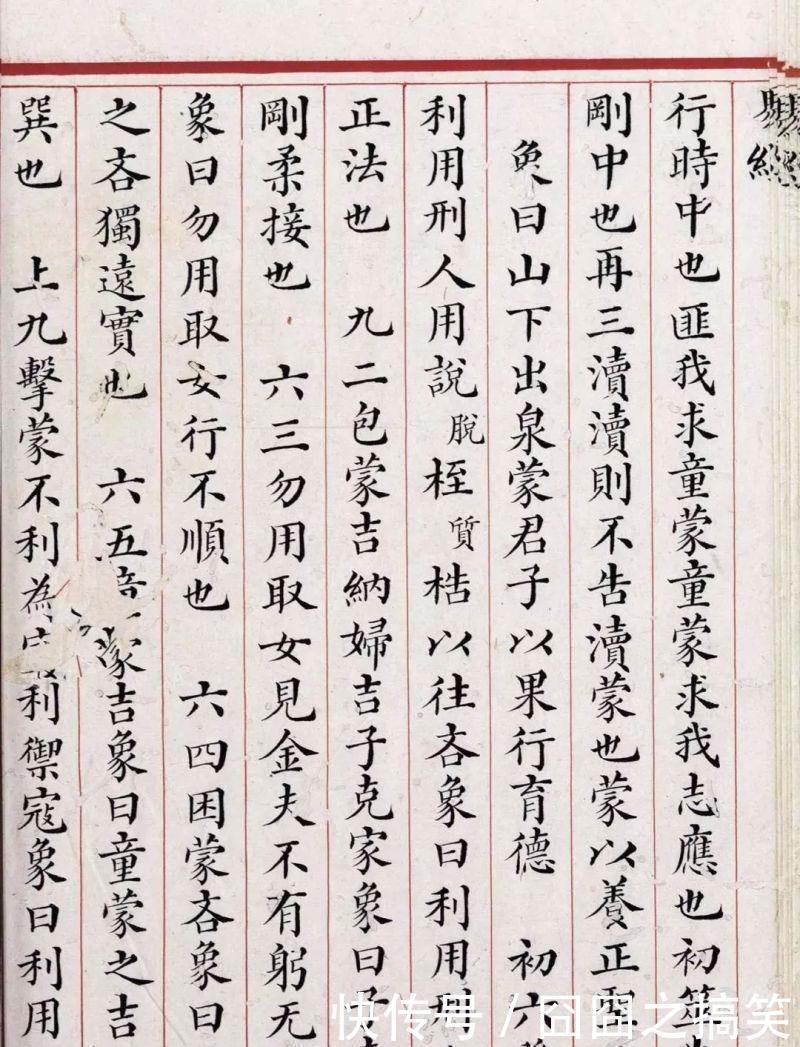 易經
行時中也匪我求童蒙童蒙求我志應也初筮
剛中也再三瀆瀆則不告瀆蒙也蒙以養正聖
象曰山下出泉蒙君子以果行育德 初六
利用刑人用說脫桎質梏以往吝象曰利用刑
正法也 九二包蒙吉納婦吉子克家象曰子
剛柔接也 六三勿用取女見金夫不有躬无
象曰勿用取女行不順也 六四困蒙吝象曰
之吝獨遠實也 六五童蒙吉象曰童蒙之吉
巽也 上九擊蒙不利為寇利禦寇象曰利用
快传号 / 囧囧之搞笑